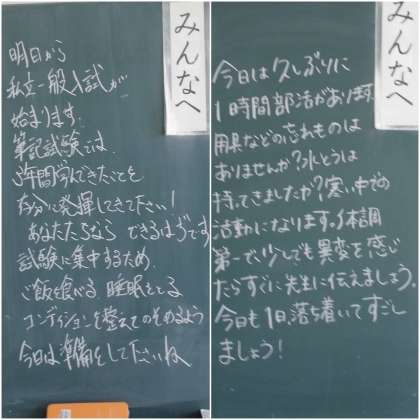 みんなへ
明日から
私立一般入試が
始まります。
筆記試験では、
3年間学んできたことを
存分に発揮してきて下さい!
あなたたちなら できるはずです
試験に集中するため、
ご飯を食べる、睡眠をとる
コンディションを整えてのぞめるよう
今日は準備をして下さいね
みんなへ
今日は久しぶりに
1時間部活があります。
用具などの忘れものは
ありませんか?水とうは
持ってきましたか?寒い中での
活動になります。体調
第一で、少しでも異変を感じ
たらすぐに先生に伝えましょう。
今日も1日、落ち着いてすごし
ましょう!